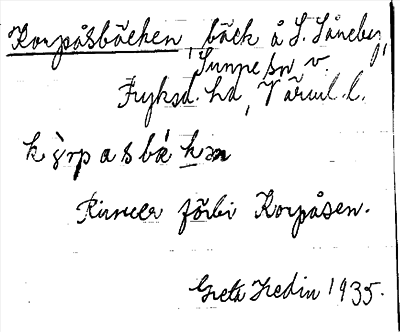 Korpåsbäcken, bäck å S. Låneberg,
Sunne sn v.
Fryksd. hd, Värml. l.
kòrpasbäkən
Rinner förbi Korpåsen.
Greta Hedin 1935.